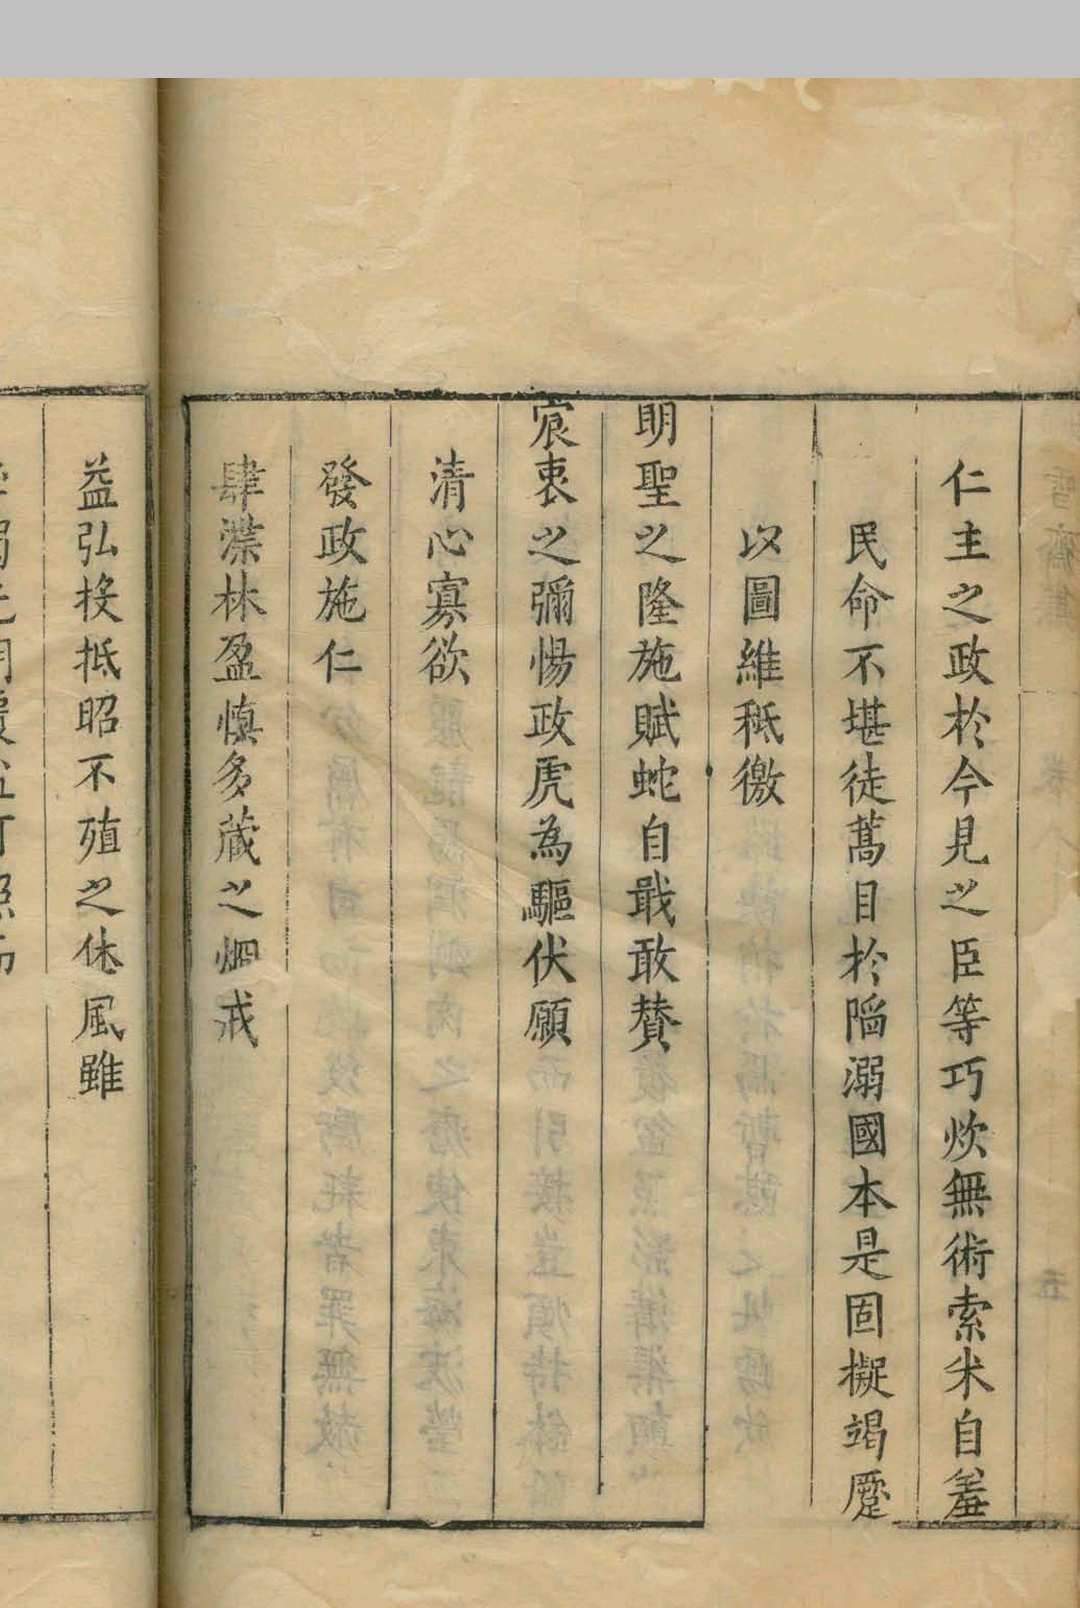 仁主之政於今見之臣等巧炊無術索米自羞
民命不堪徒蒿目於陷溺國本是固擬竭蹷
以圖維秪徼
明聖之隆施賦蛇自戢敢贊
宸衷之彌惕政虎為驅伏願
清心寡欲
發政施仁
肆滐林盈慎多藏之炯戒
益弘投抵昭不殖之休風雖